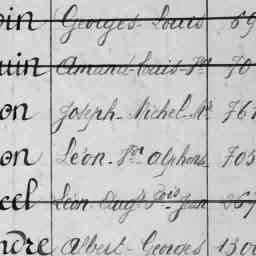 oin Georges Louis 69
uin Amand Louis 70
on Joseph Michel 761
on Léon alphons 705
cel Léon Aug Jean 867
ndre Albert Georges 1300